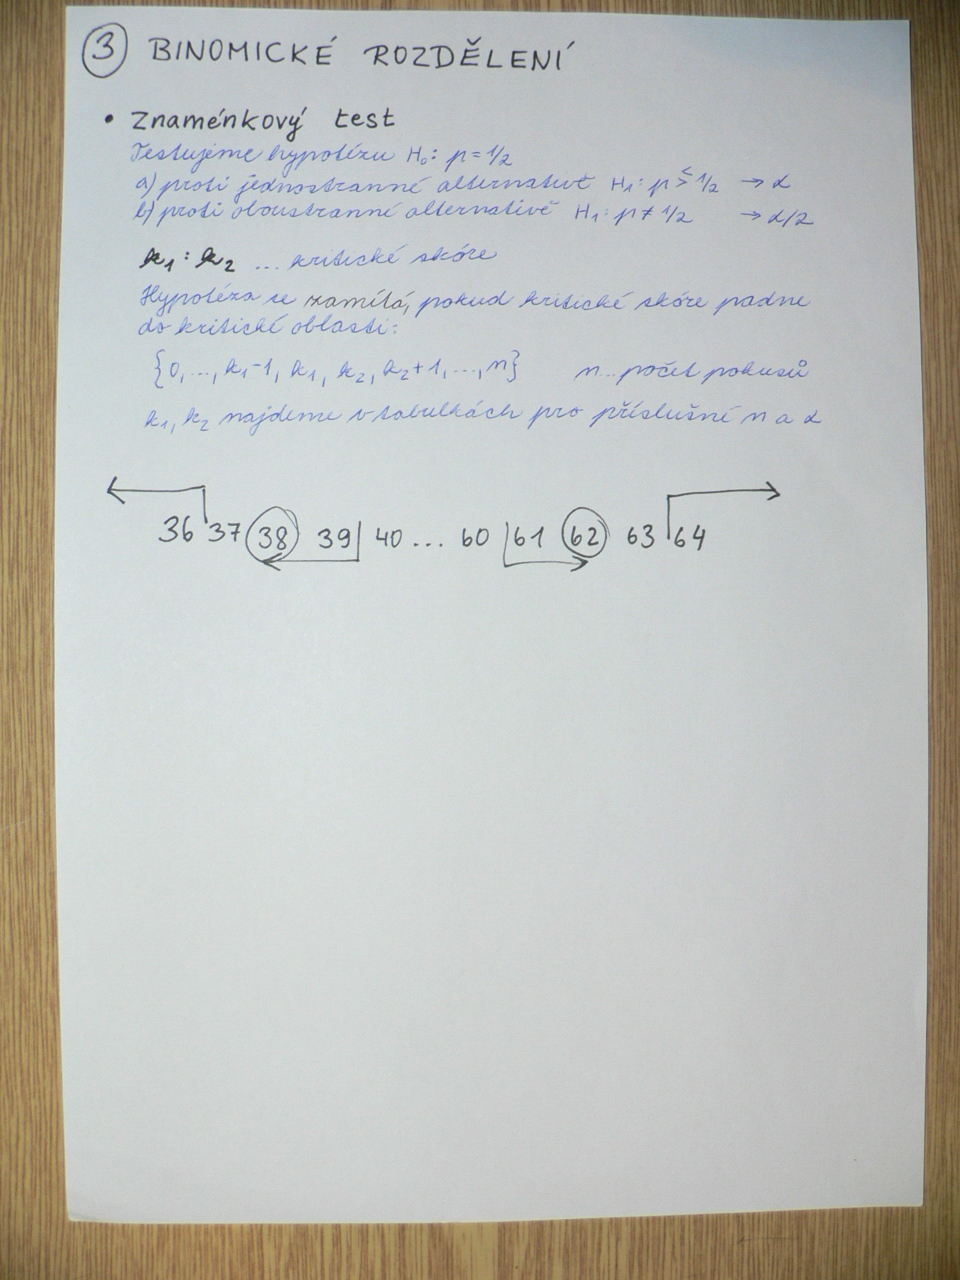 3 BINOMICKÉ ROZDĚLENÍ
• Znaménkový test
Testujeme hypotézu H₀: p = 1/2
a) proti jednostranné alternativě H₁: p ≶ 1/2 → α
b) proti oboustranné alternativě H₁: p ≠ 1/2 → α/2
k₁ : k₂ ... kritické skóre
Hypotéza se zamítá, pokud kritické skóre padne
do kritické oblasti:
{0, ..., k₁-1, k₁, k₂, k₂+1, ..., n} n...počet pokusů
k₁, k₂ najdeme v tabulkách pro příslušné n a α
36 37 38 39 40 ... 60 61 62 63 64